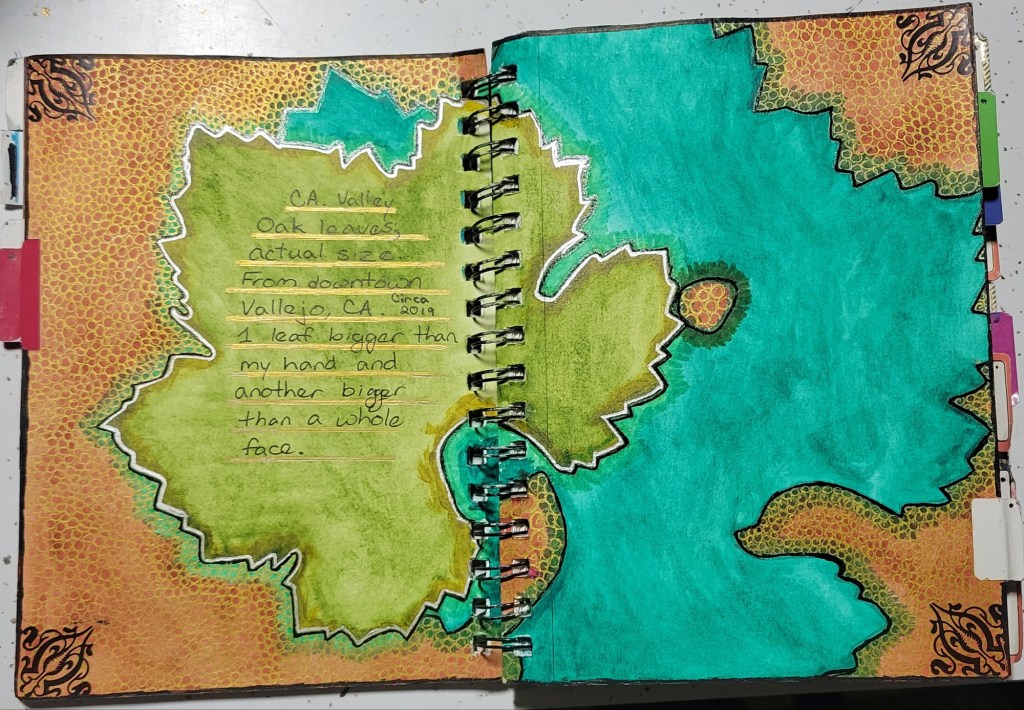 CA. Valley
Oak leaves,
actual size.
From downtown
Vallejo, CA. Circa 2019
1 leaf bigger than
my hand and
another bigger
than a whole
face.